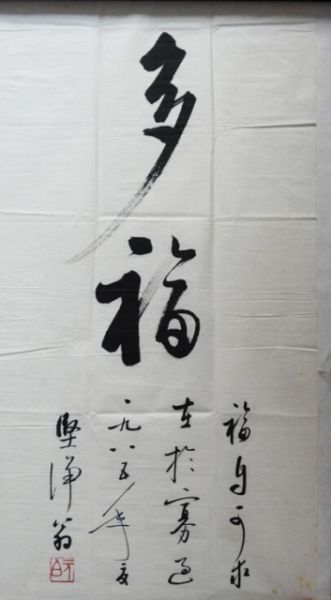 多福
福自可求
在於寡過
一九八五年夏
堅淨翁